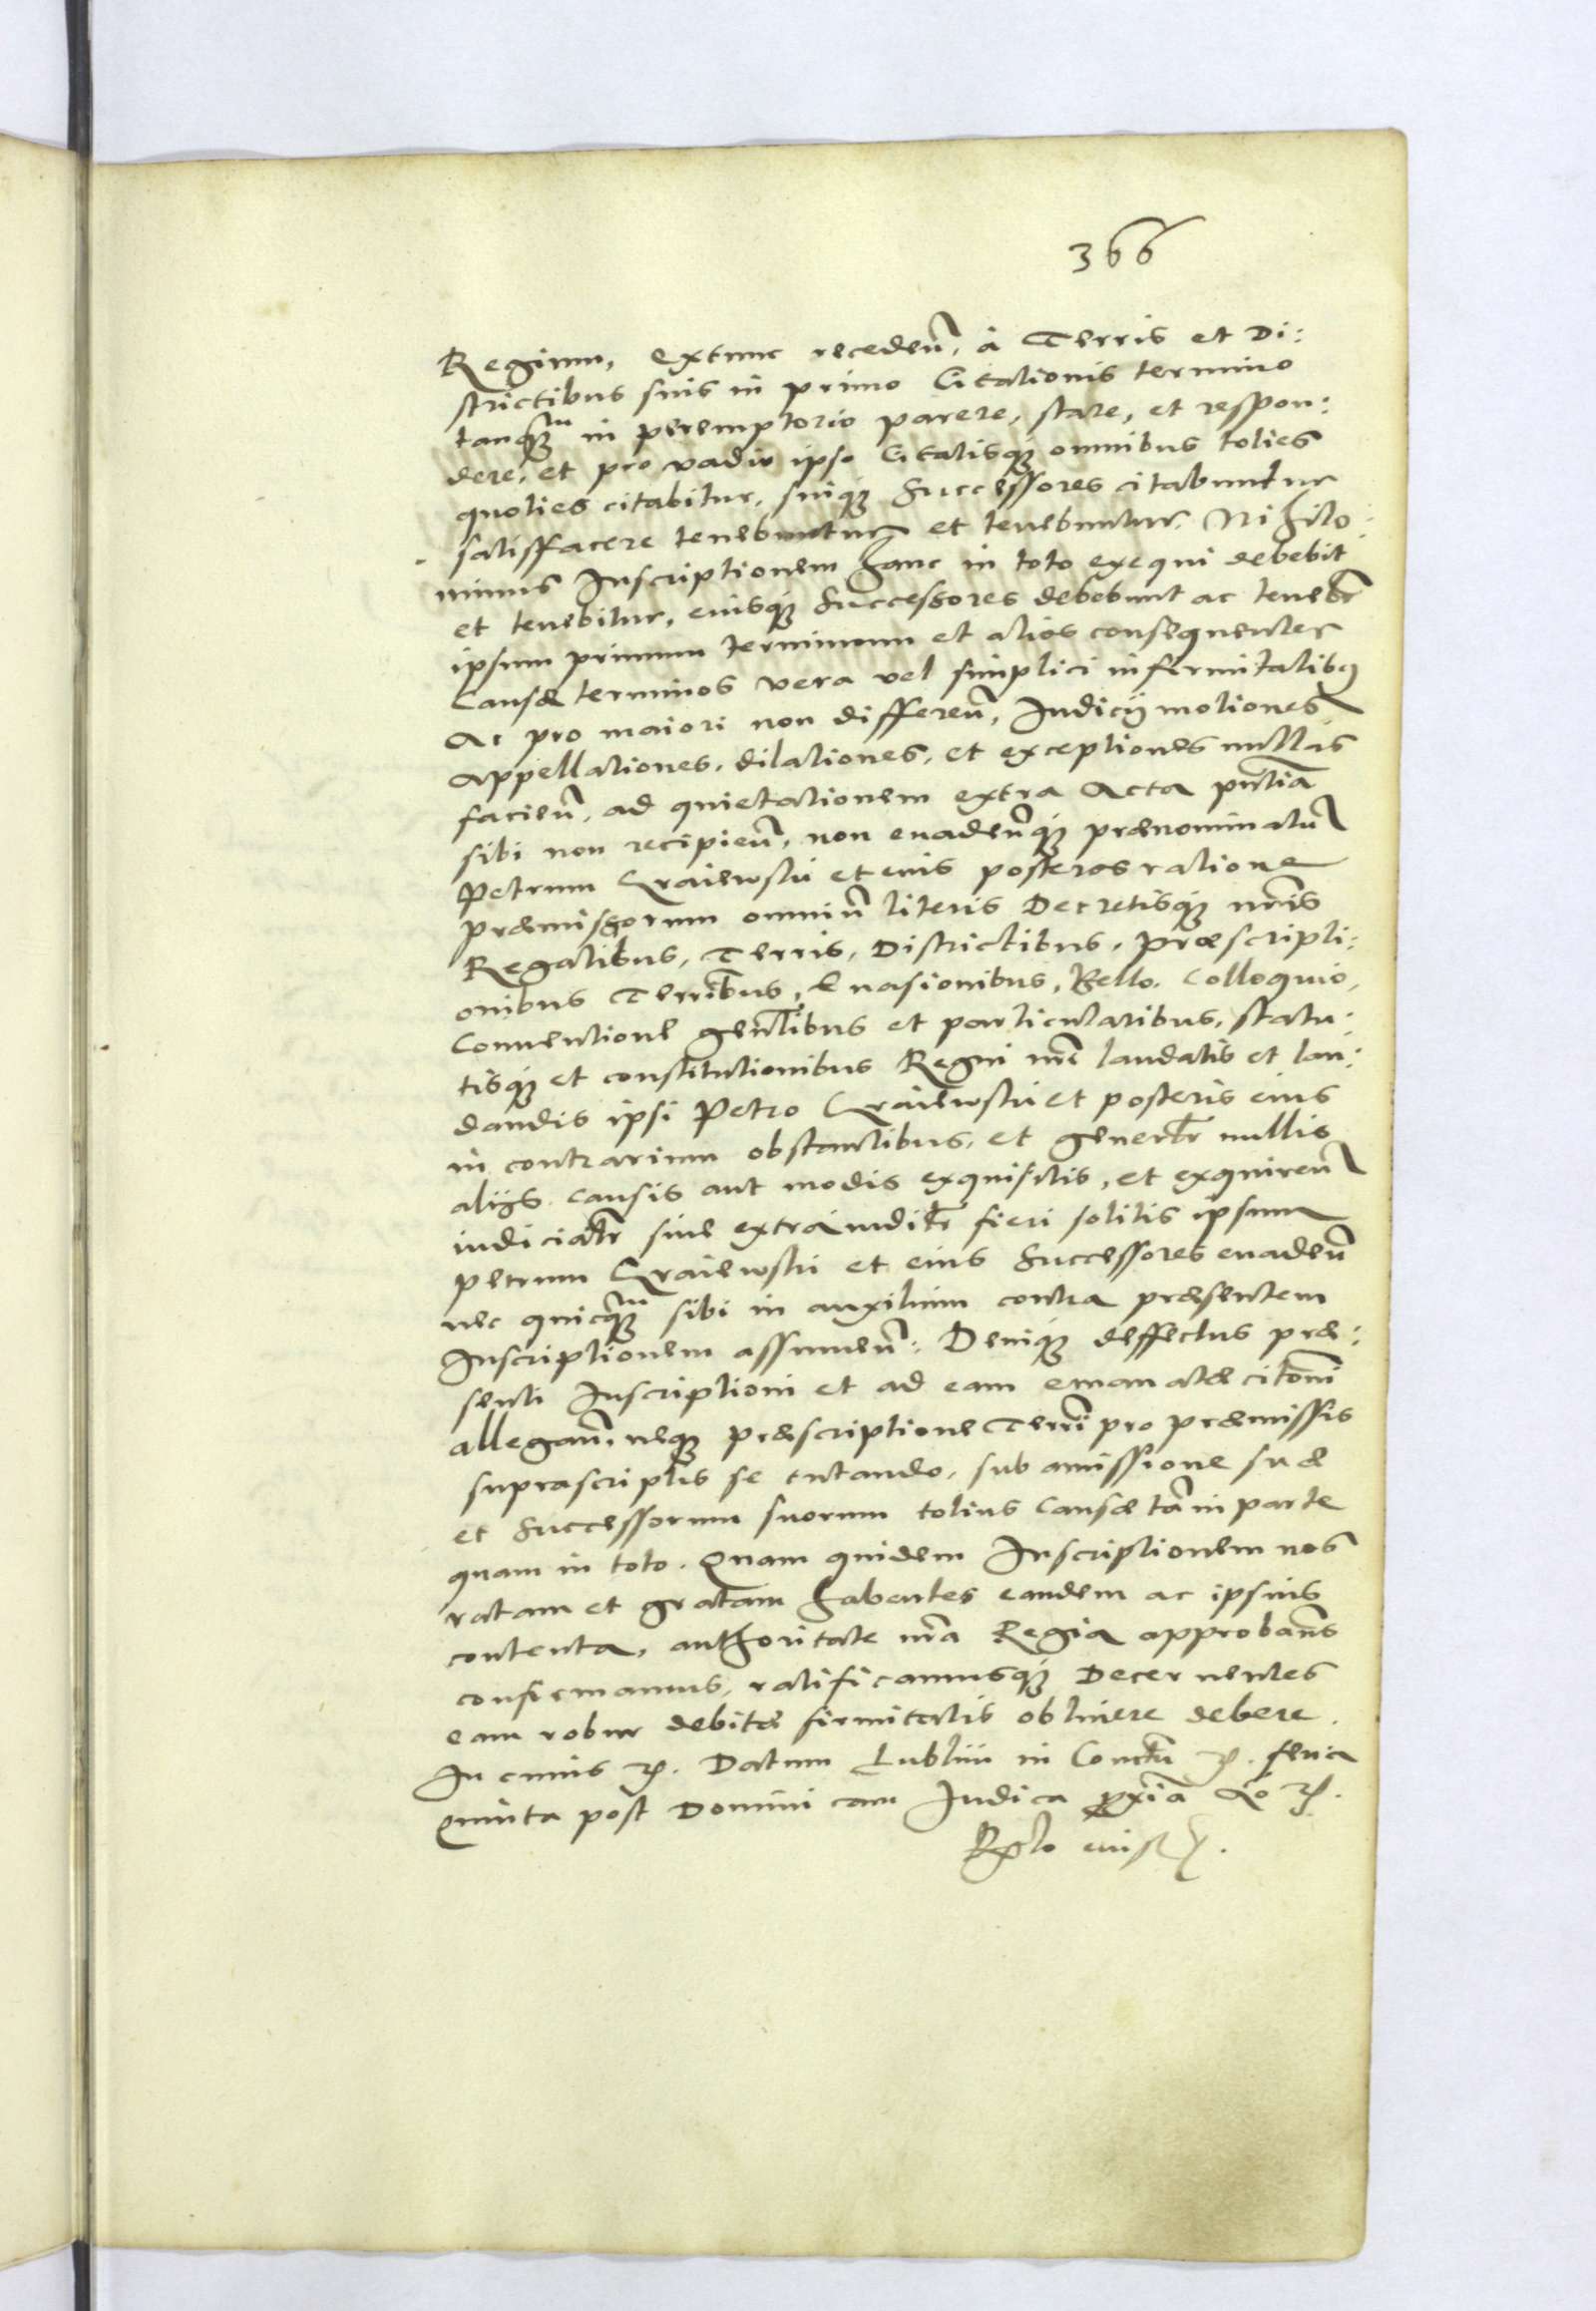 366
Reginum, extunc recedeñ, à Terris et Di:
strictibus suis in primo Citationis termino
tanq̃m in peremptorio parere, stare, et respon:
dere, et pro vadio ipso Citatisq; omnibus toties
quoties citabitur, suiq; Successores citabuntur
satisfacere tenebuntur et tenebuntur. Nihilo:
minus Inscriptionem hanc in toto exequi debebit
et tenebitur, eiusq; Successores debebunt ac teneb̃r
ipsum primum terminum et alios consequenter
Causæ terminos vera vel simplici infirmitatibus
Ac pro maiori non differeñ, Iudicij motiones
Appellationes, dilationes, et exceptiones nullas
facieñ, ad quietationem extra Acta pñtia
sibi non recipieñ, non evadeñq; prænominatũ
Petrum Kraiewski et eius posteros ratione
præmissorum omniũ literis Decretisq; nr̃is
Regalibus, Terris, Districtibus, præscripti:
onibus Terri͠bus, Evasionibus, Bello, Colloquio,
Conventione gen̄libus et particularibus, statu:
tisq; et constitutionibus Regni nr̃i laudatis et lau:
dandis ipsi Petro Kraiewski et posteris eius
in contrarium obstantibus, et generl̃r nullis
alijs causis aut modis exquisitis, et exquireñ
iudicial̃r sive extraiudil̃r fieri solitis ipsum
Petrum Kraiewski et eius Successores evadeñ
nec quicq̃m sibi in auxilium contra præsentem
Inscriptionem assumeñ: Deniq; deffectus præ:
senti Inscriptioni et ad eam emanatæ cito͠ni
allegañ, neq; præscriptione Terri͠ pro præmissis
suprascriptis se tutando, sub amissione suæ
et Successorum suorum totius Causæ tã in parte
quam in toto. Quam quidem Inscriptionem nos
ratam et gratam habentes eandem ac ipsius
contenta, authoritate nr̃a Regia approbam̃s
confirmamus, ratificamusq; Decernentes
eam robur debitæ firmitatis obtinere debere.
In cuius rei. Datum Lublini in Convẽtu rei. feria
Quinta post Dominicam Iudica p̱xĩa Ao rei.